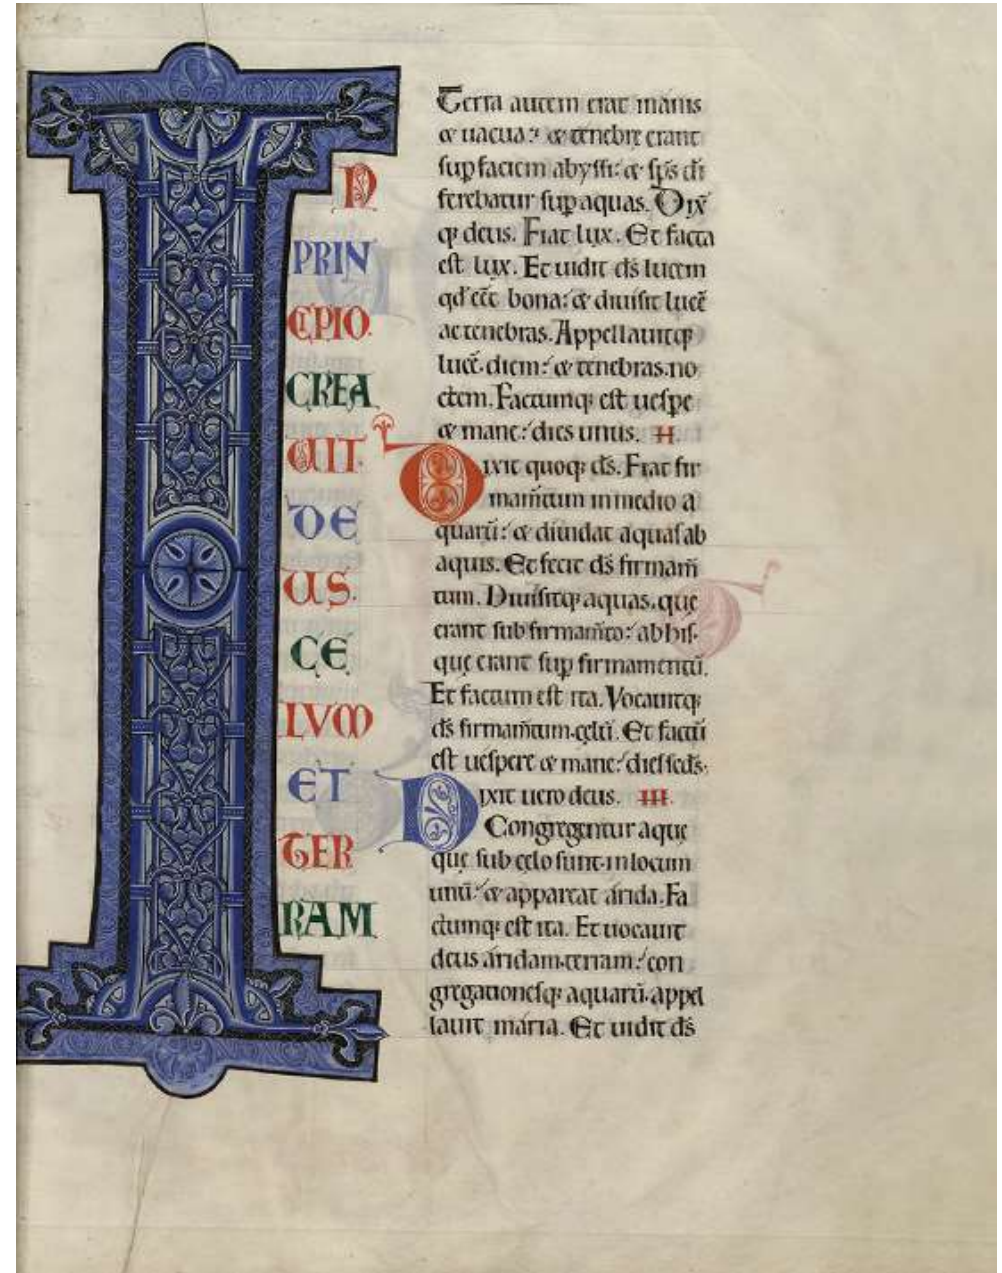 IN
PRIN
CIPIO.
CREA
UIT.
DE
US.
CĘ
LUM
ET
TER
RAM
Terra autem erat inanis
& uacua: & tenebrę erant
sup faciem abyssi: & sp̄s dī
ferebatur sup aquas. Dix̄
q; deus. Fiat lux. Et facta
est lux. Et uidit ds̄ lucem
qd' eēt bona: & diuisit lucē
ac tenebras. Appellauitq;
lucē diem: & tenebras no
ctem. Factumq; est uespe
& mane: dies unus. II.
Dixit quoq; ds̄. Fiat fir
mam̄tum in medio a
quarū: & diuidat aquas ab
aquis. Et fecit ds̄ firmam̄
tum. Diuisitq; aquas, quę
erant sub firmam̄to: ab his.
quę erant sup firmamentū.
Et factum est ita. Vocauitq;
ds̄ firmam̄tum cęlū. Et factū
est uespere & mane: dies scds̄.
Dixit uero deus. III.
Congregentur aquę
quę sub cęlo sunt in locum
unū: & appareat árida. Fa
ctumq; est ita. Et uocauit
deus áridam terram: con
gregationesq; aquarū. appel
lauit mária. Et uidit ds̄